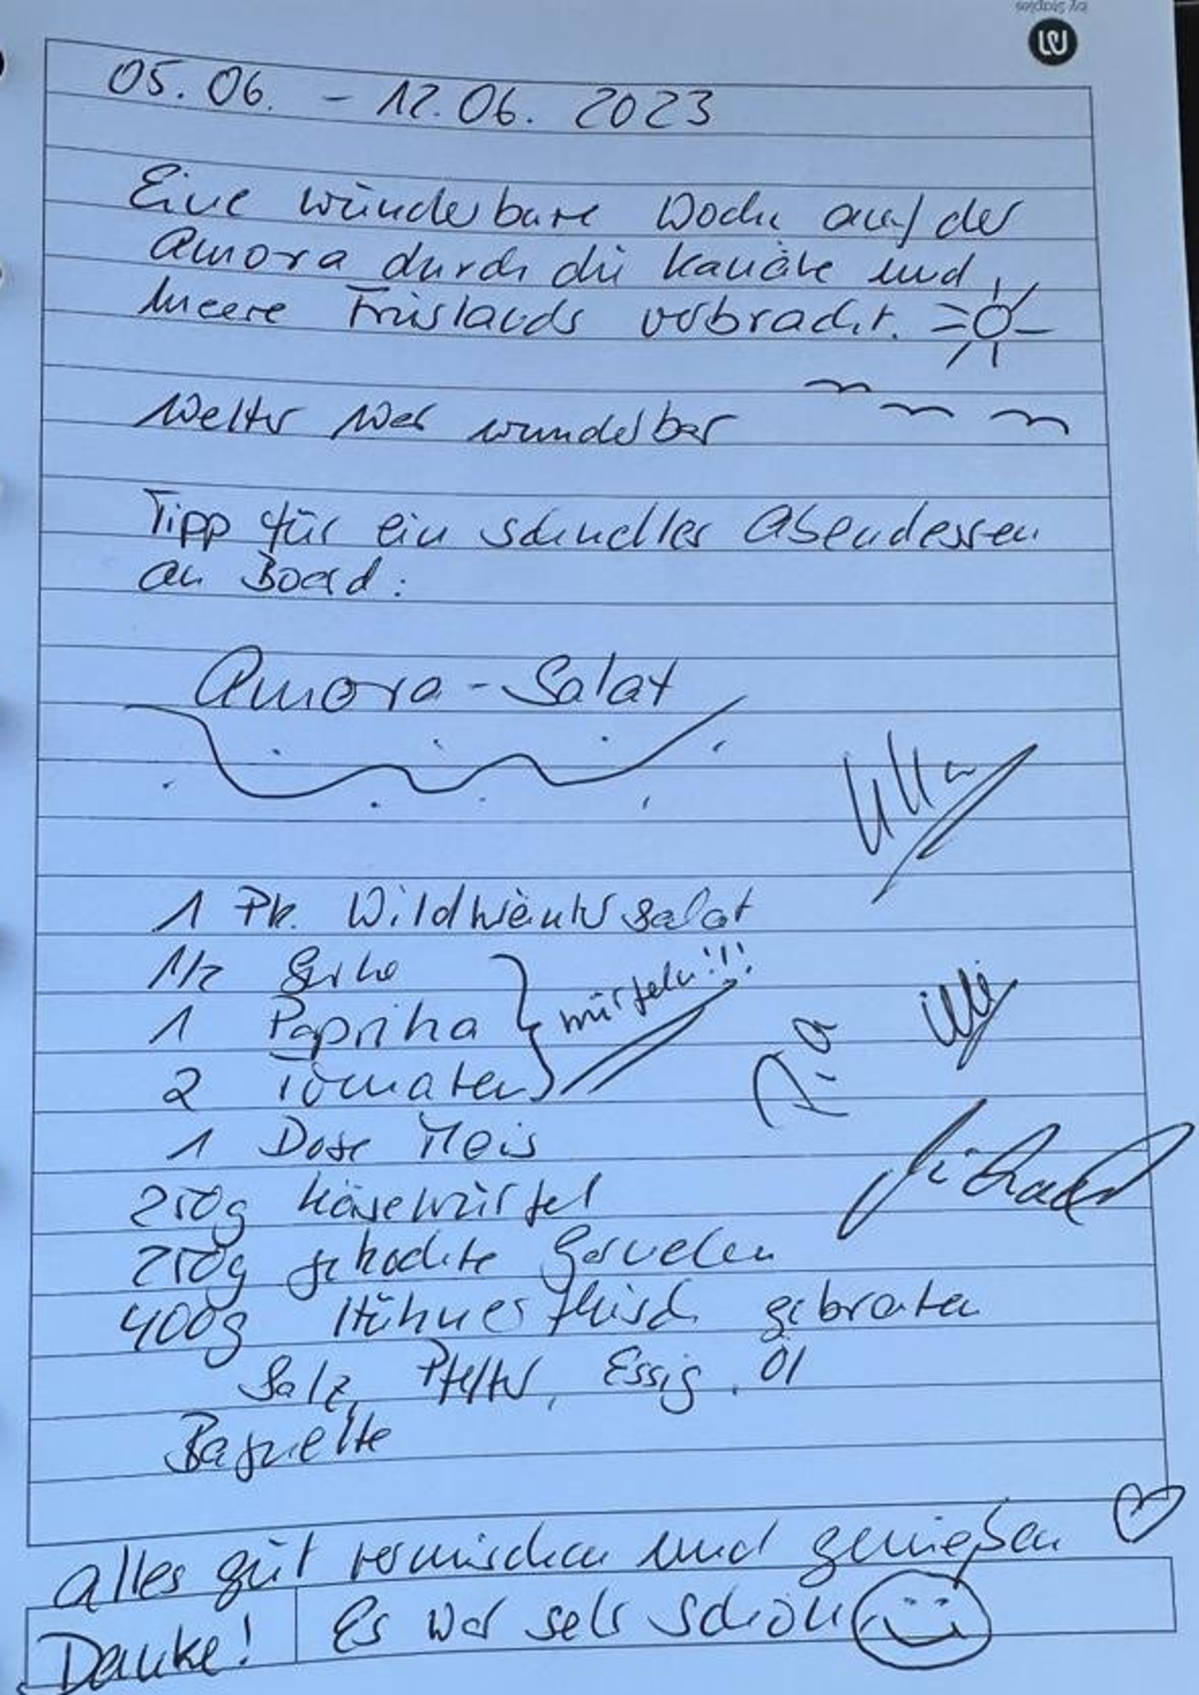 by Staples
05.06. - 12.06. 2023
Eine wunderbare Woche auf der
Amora durch die Kanäle und
Meere Frieslands verbracht.
Wetter war wunderbar
Tipp für ein schnelles Abendessen
an Board:
Amora-Salat
Ulla
1 Pk. Wildkräutersalat
1/2 Gurke
1 Paprika
2 Tomaten
würfeln!!!
Pia
Uli
1 Dose Mais
Michael
250g Käsewürfel
250g gekochte Garnelen
400g Hühnerfleisch gebraten
Salz, Pfeffer, Essig, Öl
Baguette
alles gut vermischen und genießen
Danke! Es war sehr schön